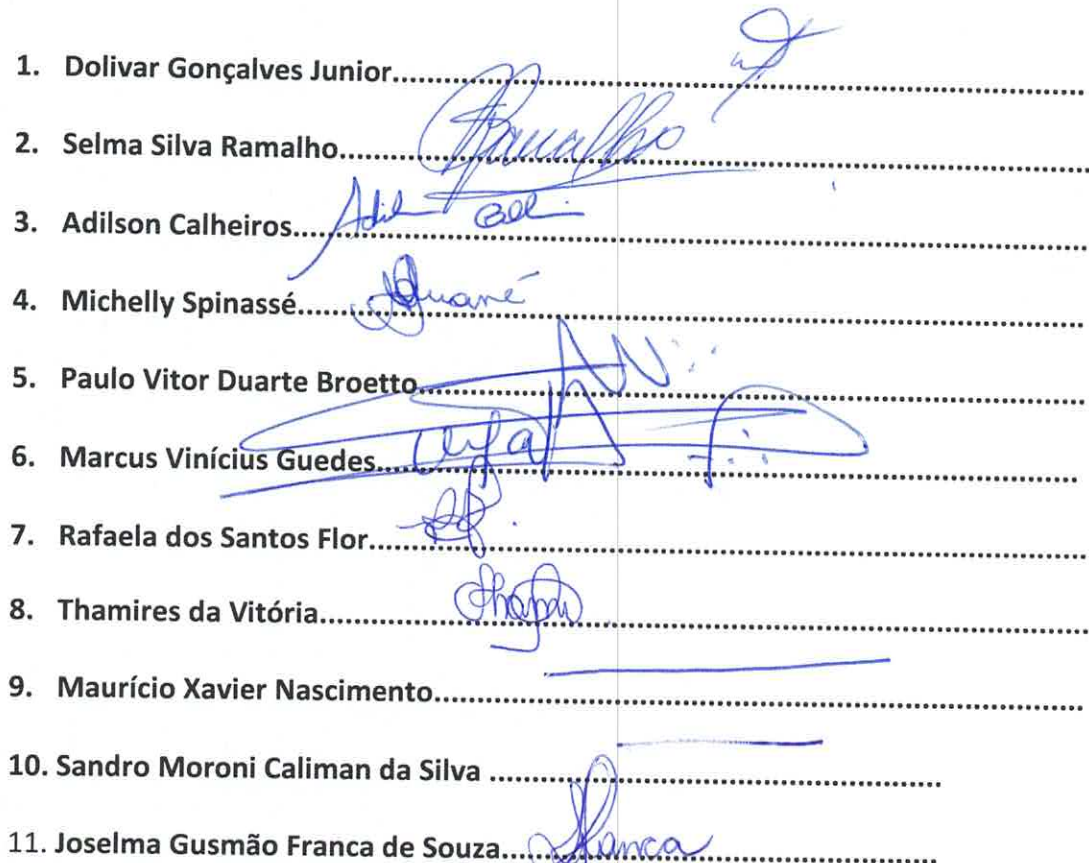 1. Dolivar Gonçalves Junior
2. Selma Silva Ramalho Ramalho
3. Adilson Calheiros
4. Michelly Spinassé
5. Paulo Vitor Duarte Broetto
6. Marcus Vinícius Guedes
7. Rafaela dos Santos Flor
8. Thamires da Vitória
9. Maurício Xavier Nascimento
10. Sandro Moroni Caliman da Silva
11. Joselma Gusmão Franca de Souza